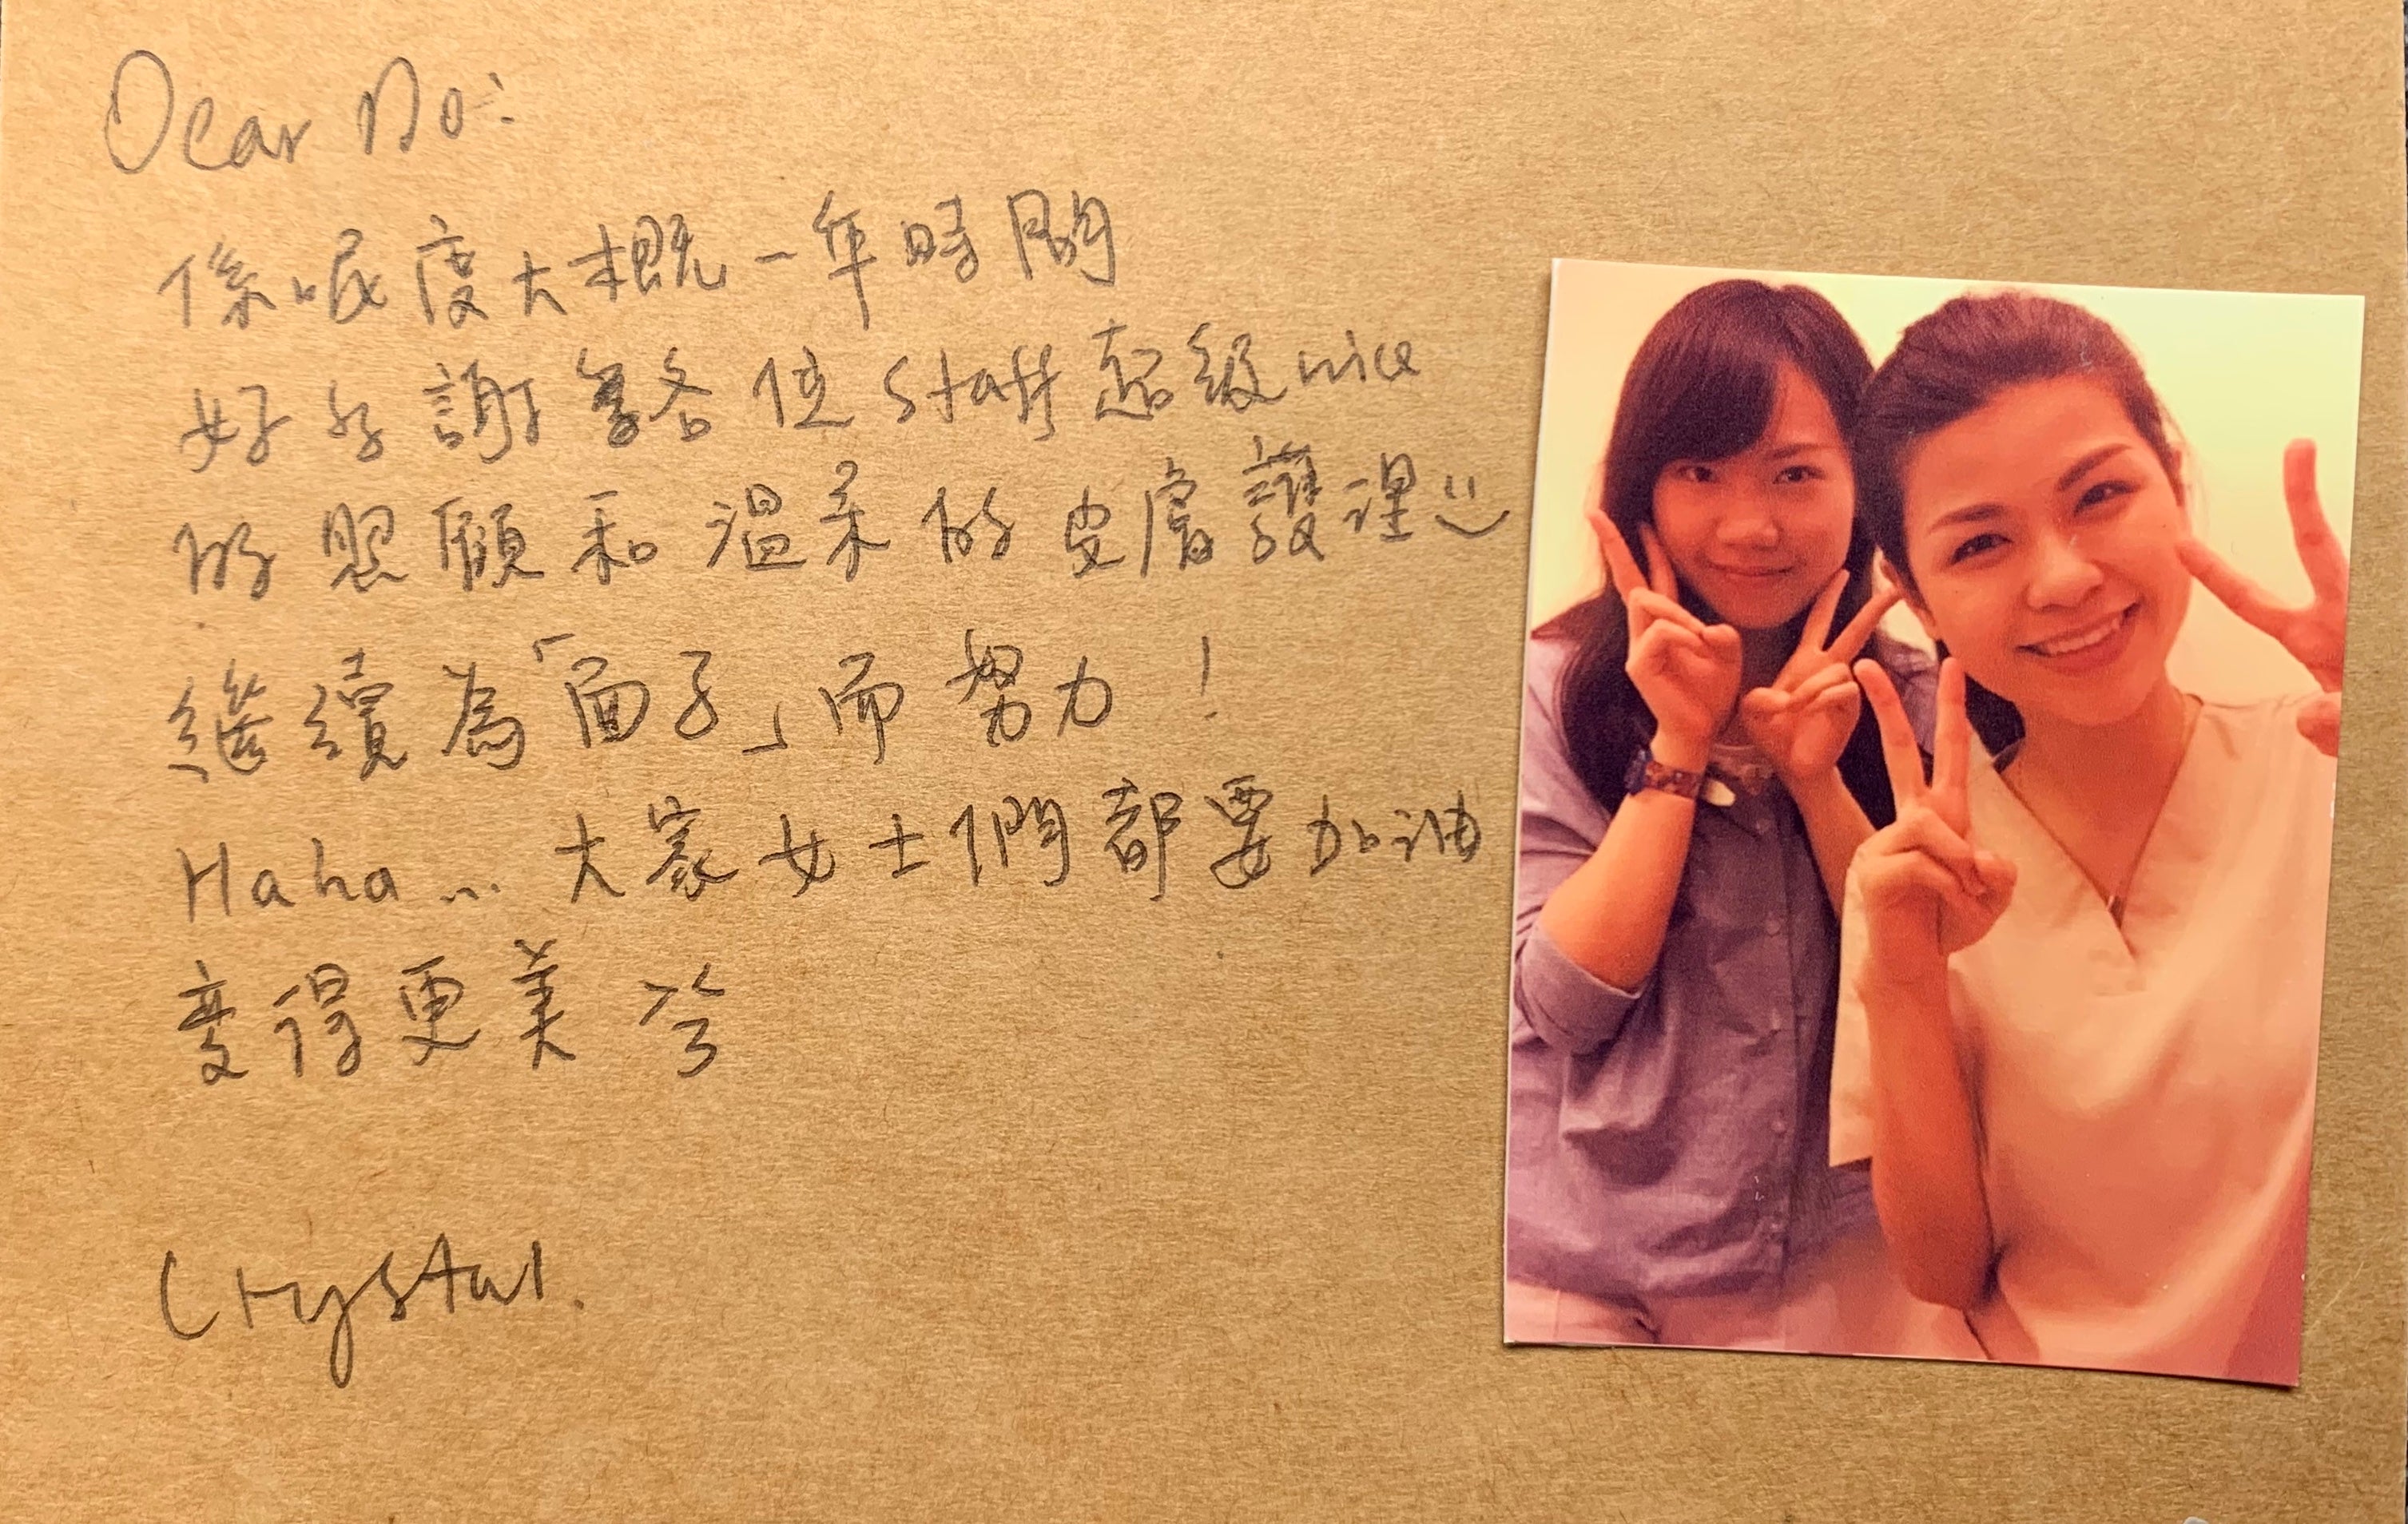 Dear Mo:
係呢度大概一年時間
好好謝各位 staff 超級 nice
的照顧和溫柔的皮膚護理
繼續為「面子」而努力！
Haha... 大家女士們都要加油
變得更美兮
Crystal.